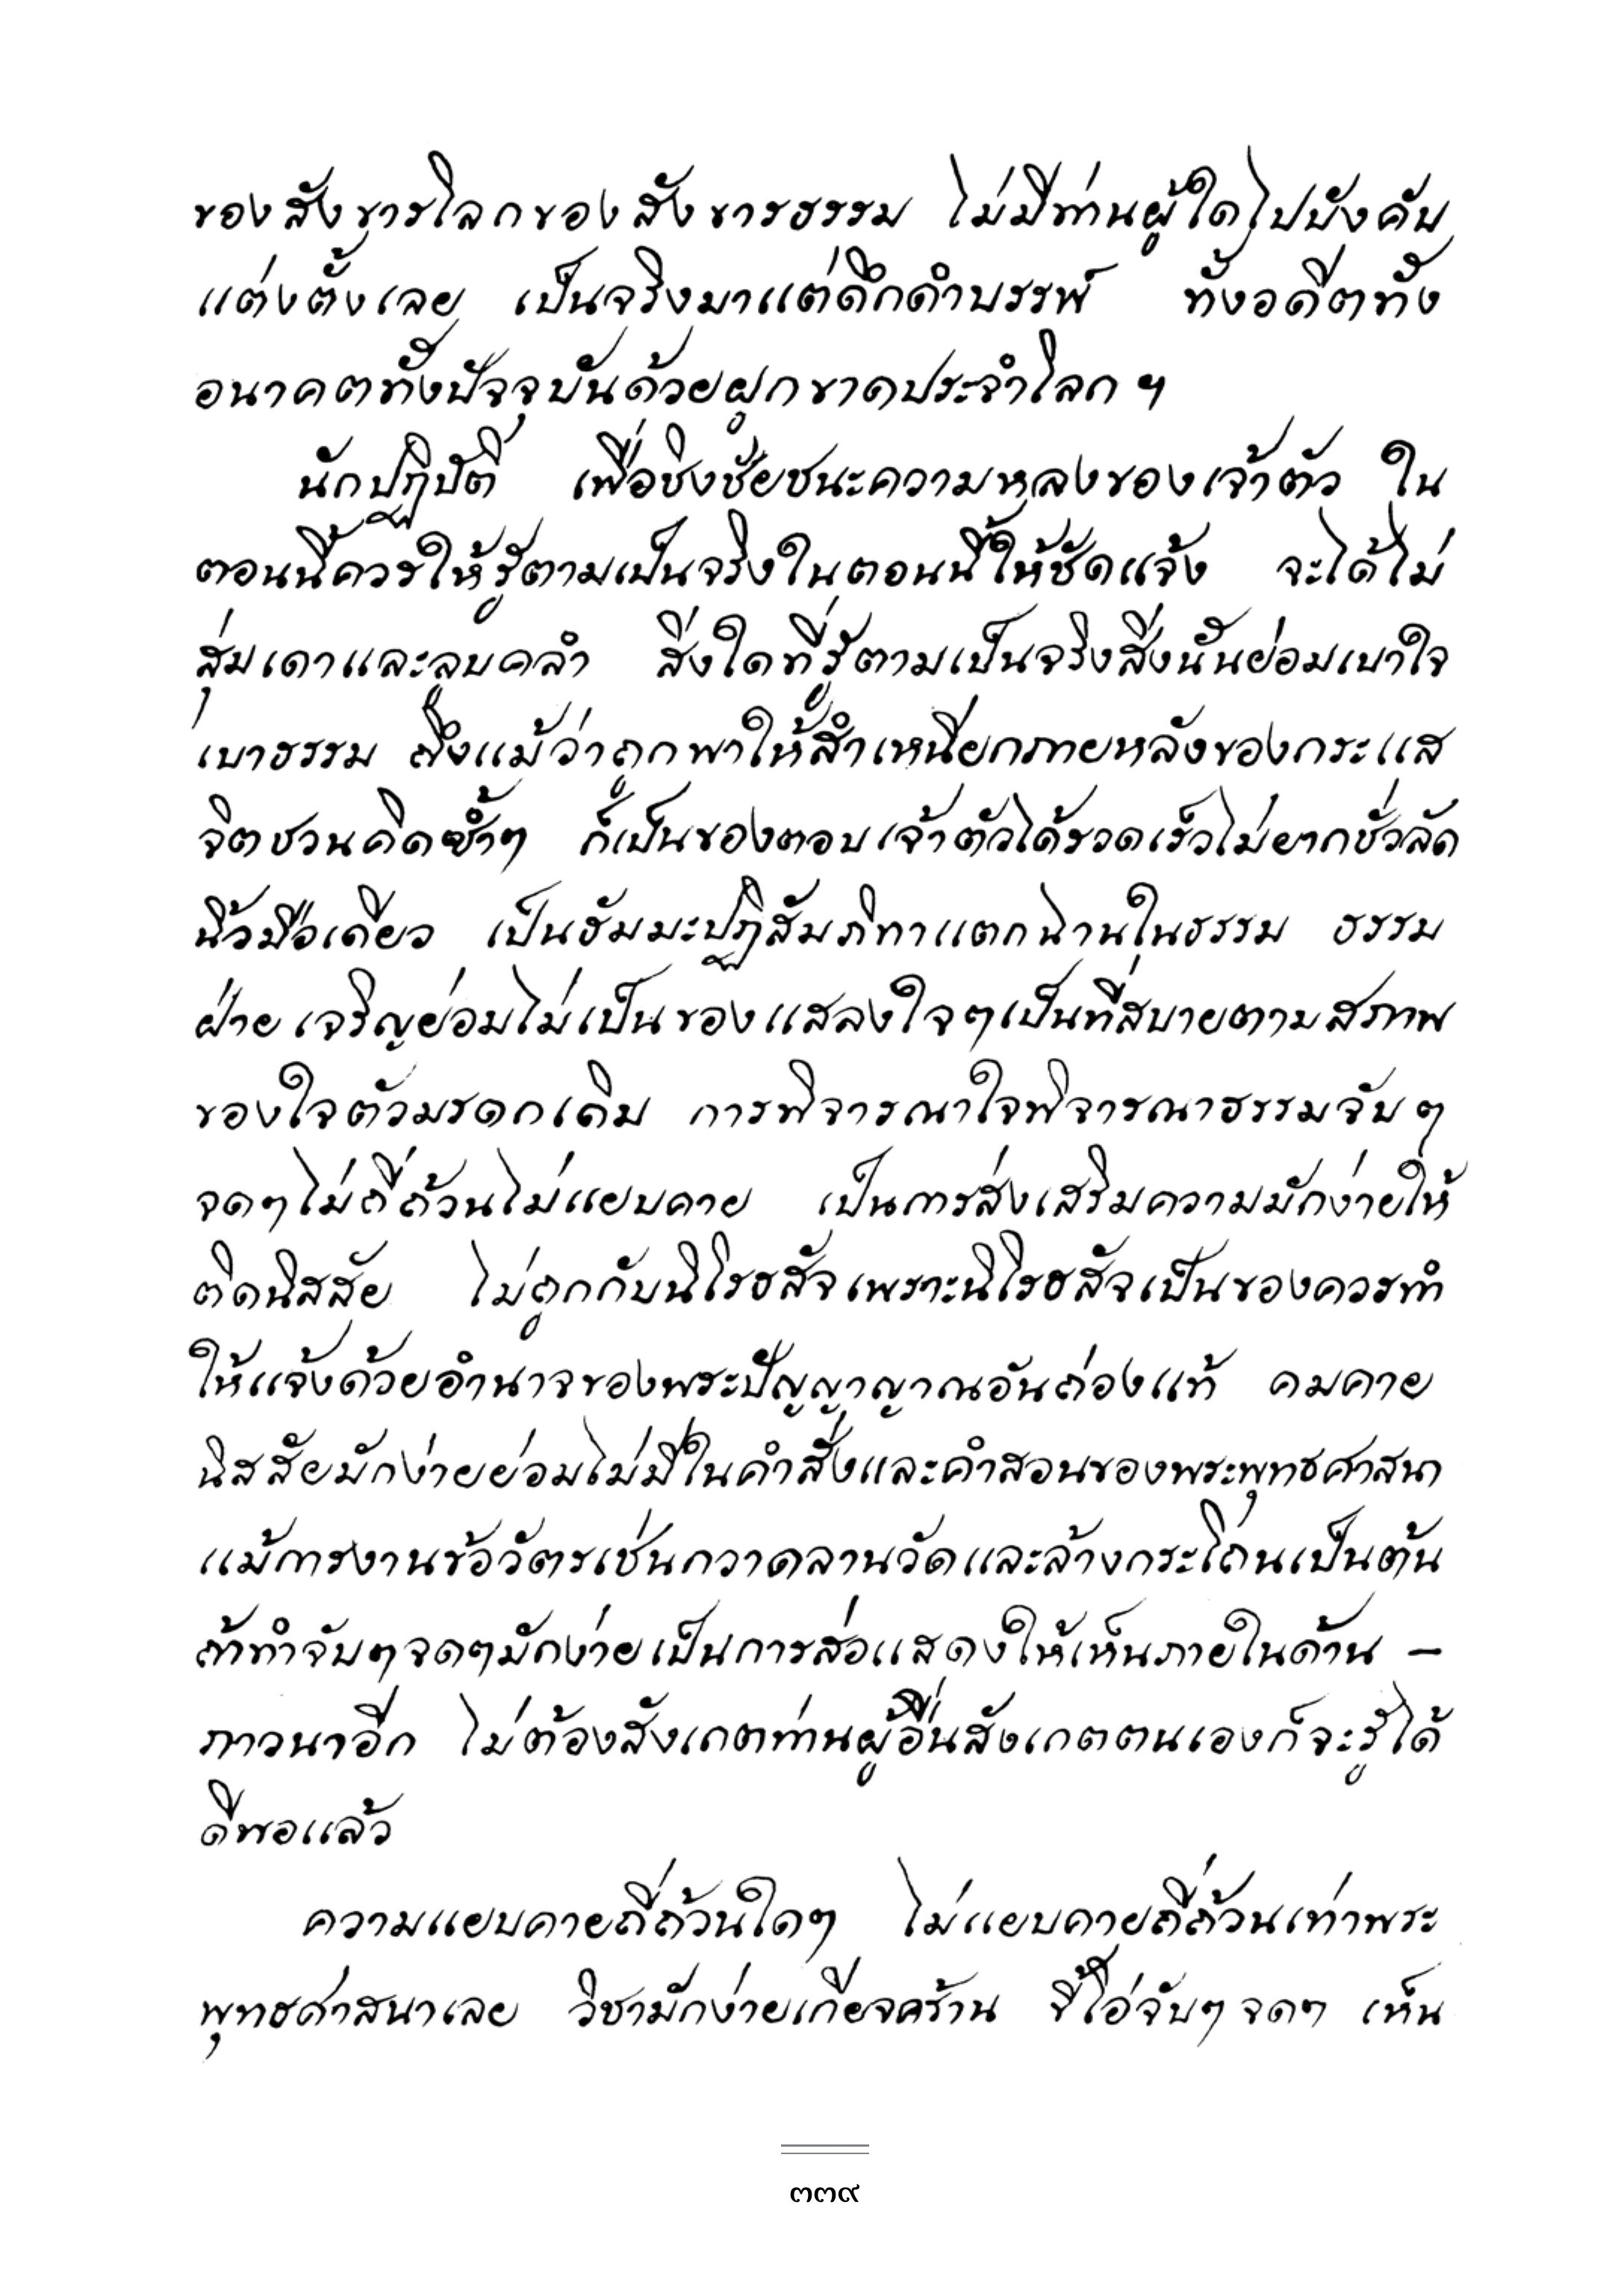 ของสังขารโลกของสังขารธรรม ไม่มีท่านผู้ใดไปบังคับ
แต่งตั้งเลย เป็นจริงมาแต่ดึกดำบรรพ์ ทั้งอดีตทั้ง
อนาคตทั้งปัจจุบันด้วยผูกขาดประจำโลก ฯ
นักปฏิบัติ เพื่อชิงชัยชนะความหลงของเจ้าตัว ใน
ตอนนี้ควรให้รู้ตามเป็นจริงในตอนนี้ให้ชัดแจ้ง จะได้ไม่
สุ่มเดาและลูบคลำ สิ่งใดที่รู้ตามเป็นจริงสิ่งนั้นย่อมเบาใจ
เบาธรรม ถึงแม้ว่าถูกพาให้สำเหนียกภายหลังของกระแส
จิตชวนคิดซ้ำๆ ก็เป็นของตอบเจ้าตัวได้รวดเร็วไม่ยากชั่วลัด
นิ้วมือเดียว เป็นธัมมะปฏิสัมภิทาแตกฉานในธรรม ธรรม
ฝ่ายเจริญย่อมไม่เป็นของแสลงใจๆเป็นที่สบายตามสภาพ
ของใจตัวมรดกเดิม การพิจารณาใจพิจารณาธรรมจับๆ
จดๆไม่ถี่ถ้วนไม่แยบคาย เป็นการส่งเสริมความมักง่ายให้
ติดนิสสัย ไม่ถูกกับนิโรธสัจเพราะนิโรธสัจเป็นของควรทำ
ให้แจ้งด้วยอำนาจของพระปัญญาญาณอันถ่องแท้ คมคาย
นิสสัยมักง่ายย่อมไม่มีในคำสั่งและคำสอนของพระพุทธศาสนา
แม้การงานข้อวัตรเช่นกวาดลานวัดและล้างกระโถนเป็นต้น
ถ้าทำจับๆจดๆมักง่ายเป็นการส่อแสดงให้เห็นภายในด้าน –
ภาวนาอีก ไม่ต้องสังเกตท่านผู้อื่นสังเกตตนเองก็จะรู้ได้
ดีพอแล้ว
ความแยบคายถี่ถ้วนใดๆ ไม่แยบคายถี่ถ้วนเท่าพระ
พุทธศาสนาเลย วิชามักง่ายเกียจคร้าน ขี้โอ่จับๆจดๆ เห็น
๓๓๙